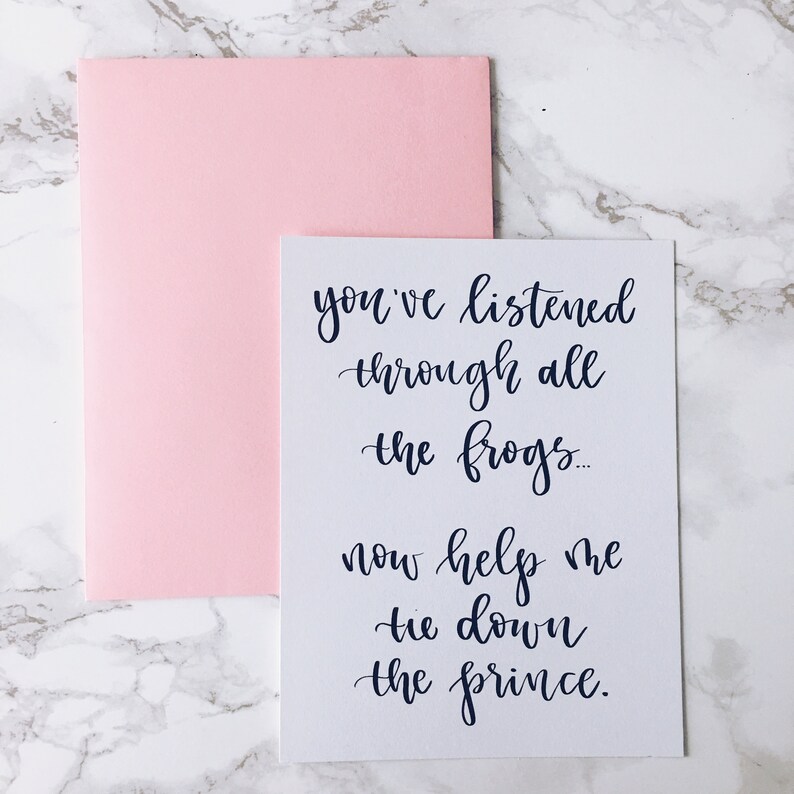 you've listened
through all
the frogs...
now help me
tie down
the prince.